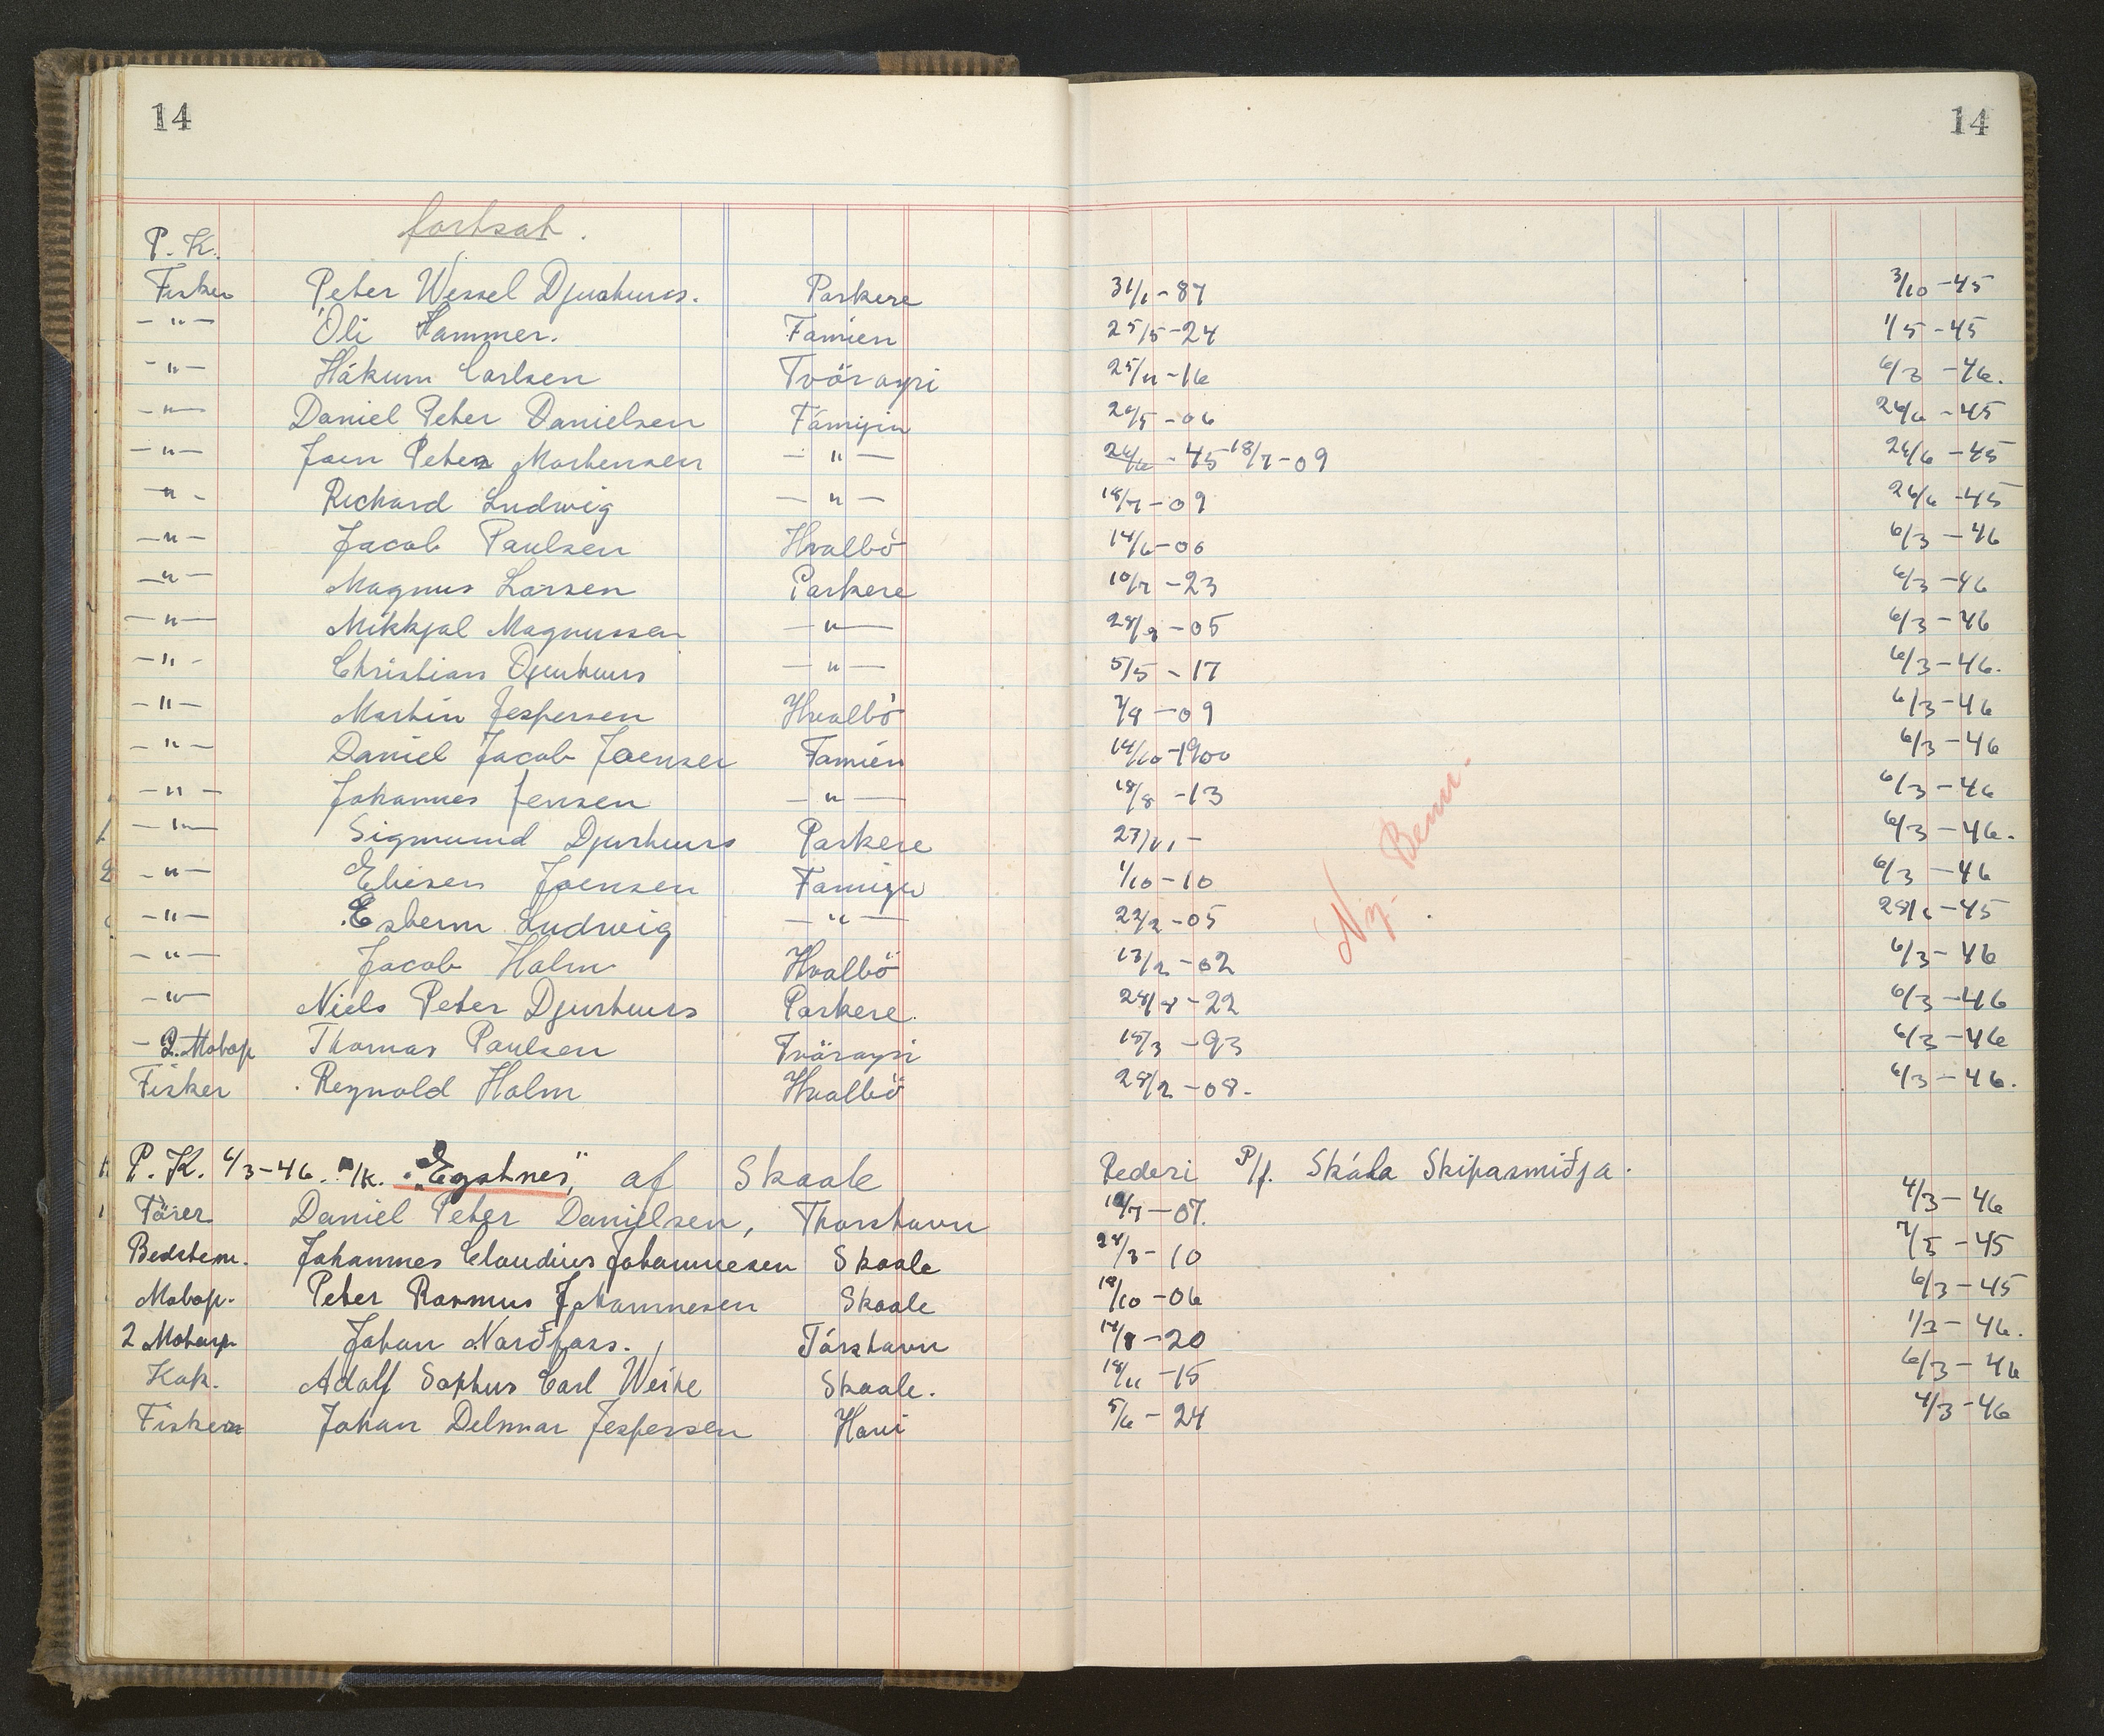 14 14
fortsat.
P. K.
Fisker Peter Wessel Djurhuus. Porkere 31/1-87 3/10-45
-"- Óli Hammer. Famien 25/5-24 1/5-45
-"- Hákun Carlsen Tvöroyri 25/11-16 6/3-46.
-"- Daniel Peter Danielsen Fámijin 26/5-06 26/6-45
-"- Joen Peter Mortensen -"- 26/6-45 18/7-09 26/6-45
-"- Richard Ludwig -"- 18/7-09 26/6-45
-"- Jacob Paulsen Hvalbö 14/6-06 6/3-46
-"- Magnus Larsen Porkere 10/7-23 6/3-46
-"- Mikkjal Magnussen -"- 05 6/3-46
-"- Christian Djurhuus -"- 5/5-17 6/3-46.
-"- Martin Jespersen Hvalbö 7/8-09 6/3-46
-"- Daniel Jacob Joensen Famien 14/10-1900 6/3-46
-"- Johannes Jensen -"- 18/8-13 6/3-46
-"- Sigmund Djurhuus Porkere 6/3-46.
-"- Eliesen Joensen Famijn 1/10-10 6/3-46
-"- Esbern Ludwig -"- 22/2-05 45
-"- Jacob Holm Hvalbö 13/2-02 6/3-46
-"- Niels Peter Djurhuus Porkere. 22 6/3-46
-2. Motop Thomas Poulsen Tvöroyri 15/3-93 6/3-46
Fisker Reynold Holm Hvalbö 28/2-08. 6/3-46.
Ny. Bem.
P. K. 6/3-46. M/K. "Egstnes", af Skaale Rederi P/f. Skála Skipasmiðja.
Förer Daniel Peter Danjelsen, Thorshavn 07. 4/3-46
Bedstem. Johannes Claudius Johannesen Skaale 24/3-10 7/5-45
Motop. Peter Rasmus Johannesen Skaale 18/10-06 6/3-45
2 Motorp Johan Norðfoss. Tórshavn 14/8-20 1/3-46.
Kok. Adolf Sophus Carl Weihe Skaale. 18/11-15 6/3-46
Fisker Johan Delmar Jespersen Hovi 5/6-24 4/3-46